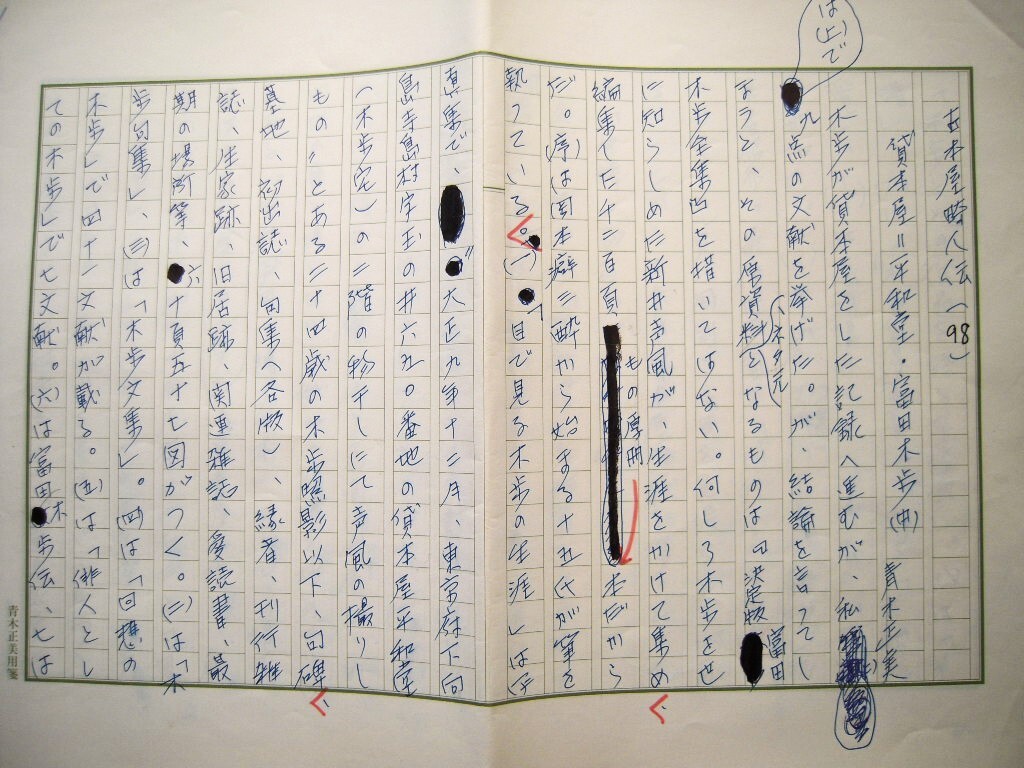 古本屋畸人伝(98)
貸本屋=平和堂・富田木歩(中)
青木正美
木歩が貸本屋をした記録へ進むが、私
は(上)で
九点の文献を挙げた。が、結論を言ってし
まうと、その原資料となるものは『決定版富田
(ネタ元)
木歩全集』を措いてはない。何しろ木歩を世
に知らしめた新井声風が、生涯をかけて集め、
編集した千二百頁もの厚冊本だから
だ。(序)は『日本癖三酔から始まる十五代が筆を
執っている。(一)「目で見る木歩の生涯」は(千
真集で、"大正九年十二月、東京府下向
島寺島村字玉の井六五〇番地の貸本屋平和堂
(木歩宅)の二階の物干しにて声風の撮りし
もの"とある二十四歳の木歩照影以下、句碑、
墓地、初出誌、句集(各版)、縁者、刊行雑
誌、生家跡、旧居跡、関連雑誌、愛読書、最
期の場所等、六十頁五十七図がつく。(二)は「木
歩句集」、(三)は「木歩文集」。(四)は「回想の
木歩」で四十一文献が載る。(五)は「俳人とし
ての木歩」で七文献。(六)は富田木歩伝、七は
青木正美用箋